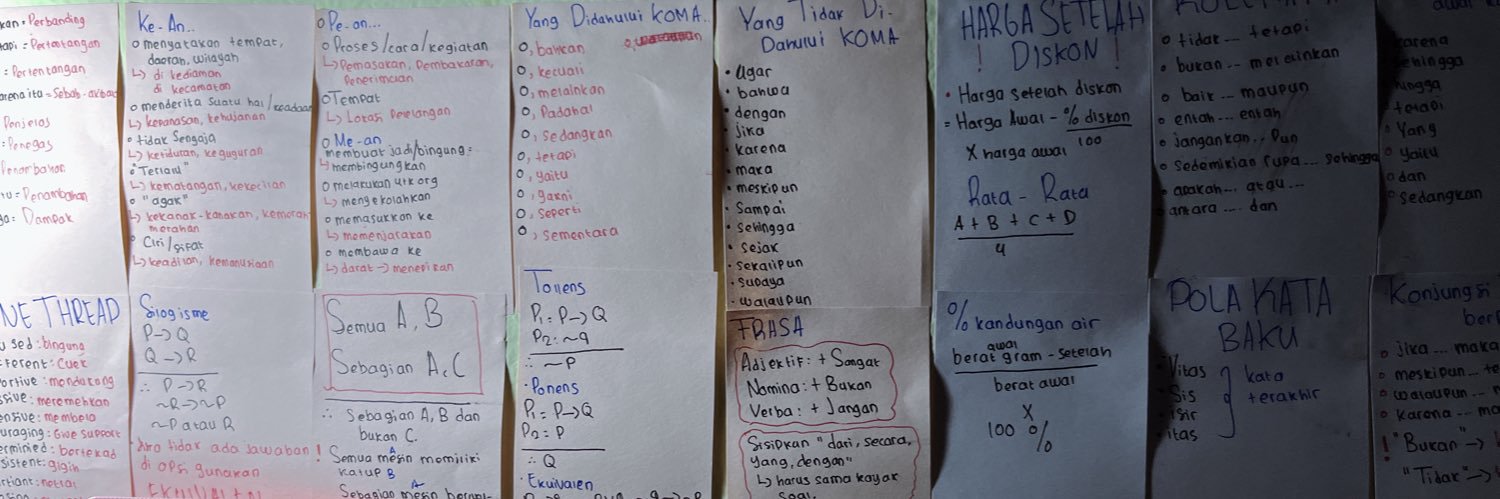 Perbanding
Pertentangan
= Pertentangan
Sebab-akibat
Penjelas
Penegas
Penambahan
= Dampak
Ke-An...
o menyatakan tempat,
daerah, wilayah
↳ di kediaman
di kecamatan
o menderita suatu hal/keadaan
↳ kepanasan, kehujanan
o tidak sengaja
↳ ketiduran, keguguran
o "Terlalu"
↳ kematangan, kekecilan
o "agak"
↳ kekanak-kanakan, kemerah
merahan
o Ciri/sifat
↳ keadilan, kemanusiaan
o Pe-an...
o Proses/cara/kegiatan
↳ Pemasakan, Pembakaran,
Penerimaan
o Tempat
↳ Lokasi Pelelangan
o Me-an
membuat jadi/bingung:
↳ membingungkan
o melakukan utk org
↳ mengekolahkan
o memasukkan ke
↳ memenjarakan
o membawa ke
↳ darat → menepikan
Yang Didahului KOMA..
o, bahkan
o, kecuali
o, melainkan
o, Padahal
o, sedangkan
o, tetapi
o, yaitu
o, yakni
o, seperti
o, sementara
Yang Tidak Di-
Dahului KOMA
• Agar
• bahwa
• dengan
• jika
• karena
• maka
• meskipun
• Sampai
• Sehingga
• Sejak
• sekalipun
• supaya
• walaupun
HARGA SETELAH
! DISKON !
• Harga setelah diskon
= Harga Awal - % diskon
100
X harga awal
Rata - Rata
A + B + C + D
4
o tidak ... tetapi
o bukan ... melainkan
o baik ... maupun
o entah ... entah
o jangankan .. Pun
o Sedemikian rupa ... sehingga
o apakah ... atau ...
o antara .... dan
karena
sehingga
hingga
o tetapi
o Yang
o yaitu
o dan
o sedangkan
THREAD
: bingung
: cuek
: mendukung
: meremehkan
: membela
: Give support
: bertekad
: gigih
Silogisme
P → Q
Q → R
∴ P → R
~R → ~P
~P atau R
Jika tidak ada jawaban !
di opsi gunakan
Semua A, B
Sebagian A, C
∴ Sebagian A, B dan
bukan C.
A
Semua mesin memiliki
katup B
A
Sebagian mesin
Tollens
P₁ = P → Q
P₂ = ~q
∴ ~P
• Ponens
P₁ = P → Q
P₂ = P
∴ Q
• Ekuivalen
FRASA
Adjektif : + Sangat
Nomina : + Bukan
Verba : + Jangan
Sisipkan "dari, secara,
yang, dengan"
↳ harus sama kayak
Soal.
% kandungan air
awal
berat gram - setelah
berat awal
X
100 %
POLA KATA
BAKU
• Vitas
• Sis
• isir
• itas
kata
terakhir
Konjungsi
o jika ... maka
o meskipun ...
o walaupun ...
o karena ...
! "Bukan" →
"Tidak" →